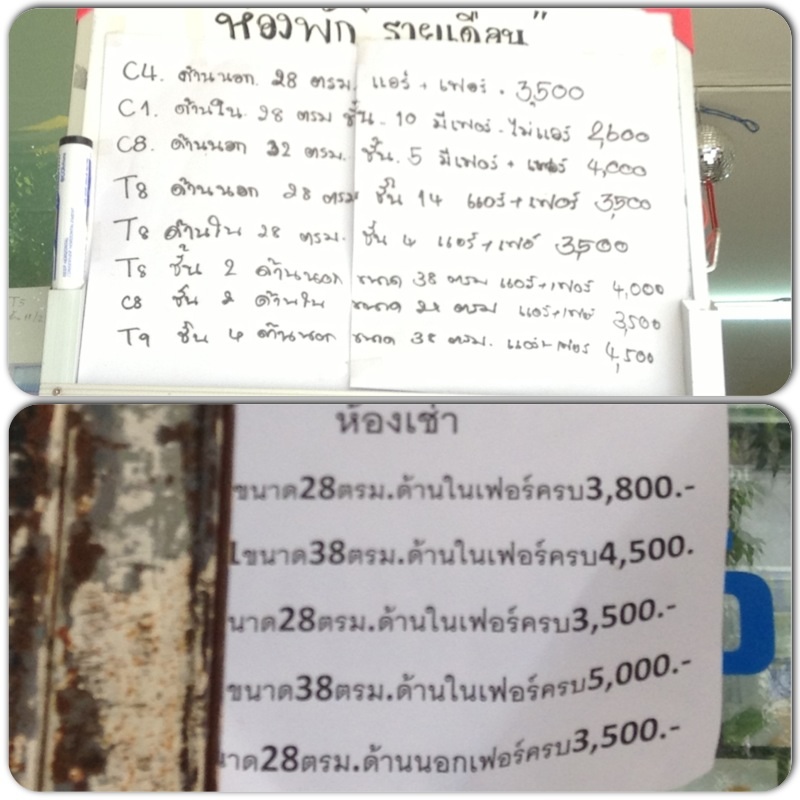 ห้องพัก "รายเดือน"
C4. ด้านนอก. 28 ตรม. แอร์ + เฟอร์. 3,500
C1. ด้านใน. 28 ตรม ชั้น. 10 มีเฟอร์. ไม่แอร์ 2,600
C8. ด้านนอก 32 ตรม. ชั้น. 5 มีเฟอร์ + แอร์ 4,000
T8 ด้านนอก 28 ตรม ชั้น 14 แอร์+เฟอร์ 3,500
T8 ด้านใน 28 ตรม. ชั้น 4 แอร์+เฟอร์ 3,500
T8 ชั้น 2 ด้านนอก ขนาด 38 ตรม แอร์+เฟอร์ 4,000
C8 ชั้น 2 ด้านใน ขนาด 28 ตรม แอร์+เฟอร์ 3,500
T9 ชั้น 4 ด้านนอก ขนาด 38 ตรม. แอร์+เฟอร์ 4,500
ห้องเช่า
ขนาด28ตรม.ด้านในเฟอร์ครบ3,800.-
ขนาด38ตรม.ด้านในเฟอร์ครบ4,500.
นาด28ตรม.ด้านในเฟอร์ครบ3,500.-
ขนาด38ตรม.ด้านในเฟอร์ครบ5,000.-
าด28ตรม.ด้านนอกเฟอร์ครบ3,500.-